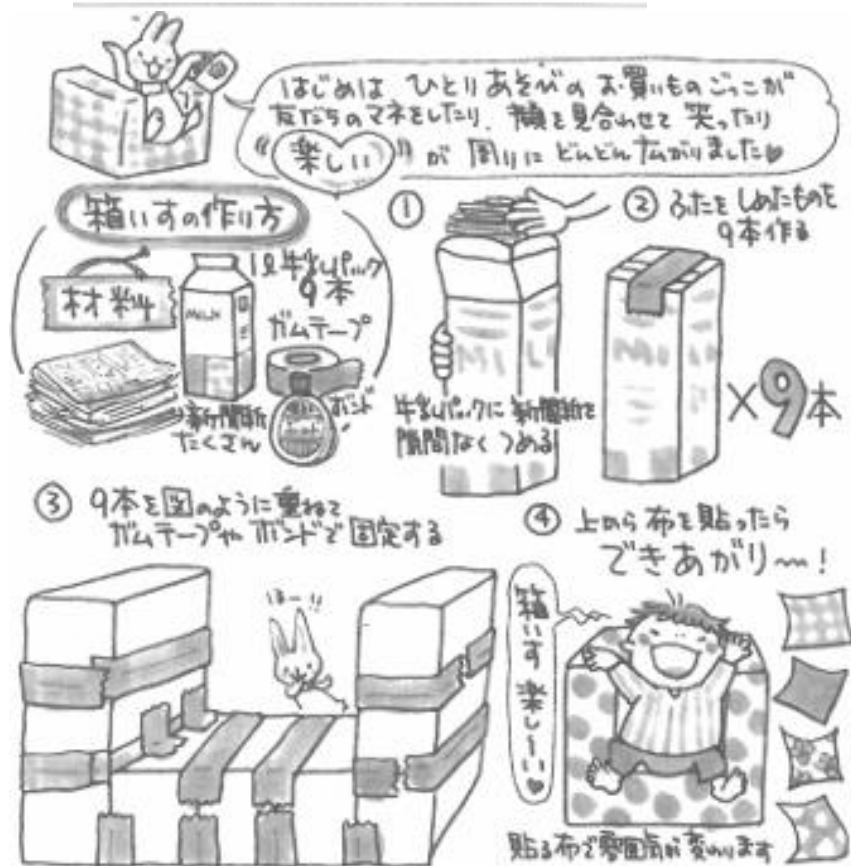 はじめは ひとりあそびの お買いものごっこが
友だちのマネをしたり、顔を見合わせて 笑ったり
"楽しい" が 周りに どんどん広がりました♥
箱いすの作り方
材料
1ℓ牛乳パック
9本
MILK
ガムテープ
新聞紙
たくさん
ボンド
①
牛乳パックに 新聞紙を
隙間なく つめる
② ふたを しめたものを
9本作る
×9本
③ 9本を図のように重ねて
ガムテープや ボンドで 固定する
ほー!!
④ 上から 布を貼ったら
できあがり〜!
箱いす 楽し〜い♥
貼る布で雰囲気が変わります